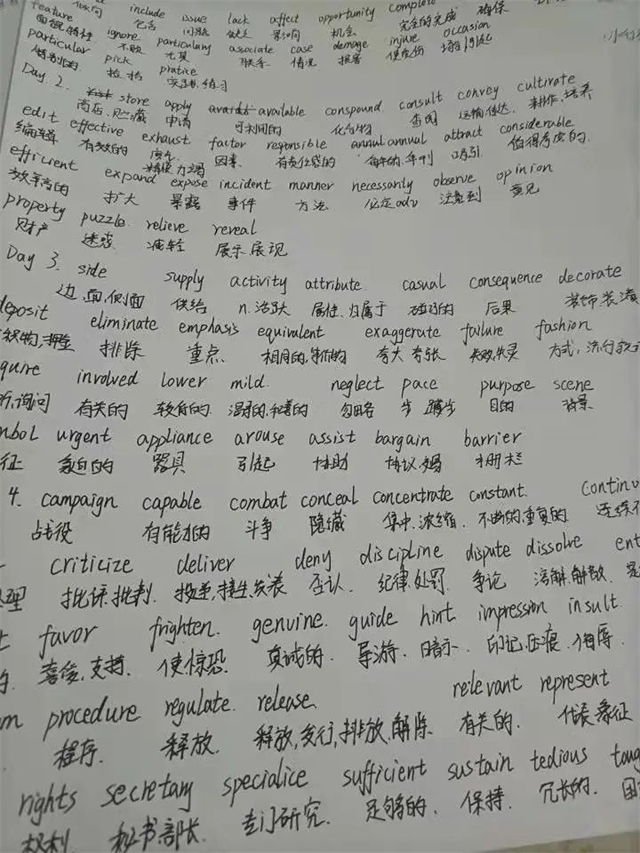 feature include issue lack affect opportunity complete
包含 问题 缺乏 影响 机会 完全的完成 确保
particular ignore particulary associate case damage injure occasion
特别的 不顾 尤其 联系 情况 损害 使受伤 场合
pick pratice
捡拾 实践练习
Day 2. store apply available conspound consult convey cultivate
商店, 贮藏 申请 可利用的 化合物 查阅 运输传达. 耕作, 培养
edit effective exhaust factor responsible annual annual attract considerable
编辑 有效的 废气 精疲力竭 因素. 有责任感的 每年的, 年刊 吸引 值得考虑的.
efficient expand expose incident manner necessarily observe opinion
效率高的 扩大 暴露 事件 方法. 必定adv 注意到 意见
property puzzle. relieve reveal
财产 迷惑. 减轻 展示. 展现
Day 3. side supply activity attribute. casual consequence decorate
边, 面, 侧面 供给 n. 活跃 属性, 归属于 碰巧的 后果 装饰, 装潢
deposit eliminate emphasis equivalent exaggerate failure fashion
排除 重点. 相同的, 等价的 夸大 夸张 失败, 失灵 方式, 流行
quire involved lower mild. neglect pace purpose scene
询问 有关的 较低的 温和的, 和善的 忽略 步 踱步 目的 背景
mbol urgent appliance arouse assist bargain barrier
征 急迫的 器具 引起 协助 协议 栅栏
4. campaign capable combat conceal concentrate constant. continu
战役 有能力的 斗争 隐藏 集中, 浓缩. 不断的, 重复的 连续不
criticize deliver deny discipline dispute dissolve ent
理 批评, 批判. 投递, 接生, 发表 否认. 纪律, 处罚. 争论 溶解, 解散.
t favor frighten. genuine. guide hint impression insult
喜爱, 支持. 使惊恐 真诚的. 导游. 暗示. 印记, 压痕. 侮辱
m procedure regulate. release. relevant represent
程序. 释放. 释放, 发行, 排放, 解除. 有关的. 代表, 象征
rights secretary specialice sufficient sustain tedious toug
权利. 秘书. 部长. 专门研究. 足够的. 保持. 冗长的.